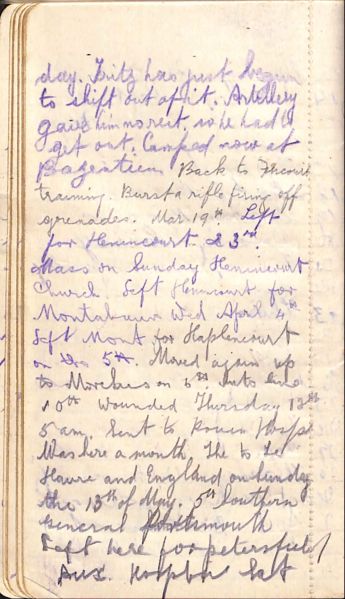 day. Fritz has just begun
to shift out of it. Artillery
gave him no rest so he had to
get out. Camped now at
Bazentien Back to Fricourt
training. Burst a rifle firing off
grenades. Mar 19th Left
for Henincourt 23rd.
Mass on Sunday Henincourt
Church. Left Henincourt for
Montabuan Wed April 4th
Left Mont for Haplincourt
on the 5th. Moved again up
to Morchies on 6th into line
10th Wounded Thursday 12th
5 am Sent to Rouen Hosp
Was here a month. The to Le
Havre and England on Sunday
the 13th of May. 5th Southern
General Portsmouth
Left here for petersfield
Aux. Hospital Sat